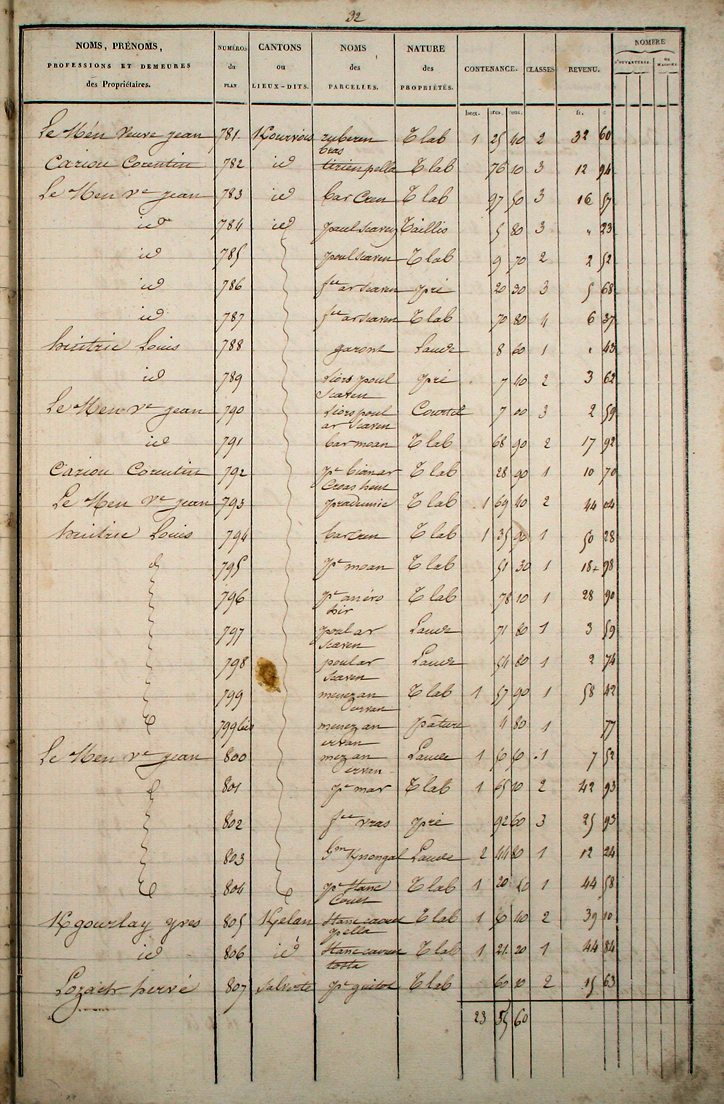 32
NOMS, PRÉNOMS, PROFESSIONS ET DEMEURES des Propriétaires. NUMÉROS du PLAN CANTONS ou LIEUX-DITS. NOMS des PARCELLES. NATURE des PROPRIÉTÉS. CONTENANCE. CLASSES REVENU. NOMBRE D'OUVERTURES DE MAISONS
hect. ares. cent. fr.
Le Mén Veuve jean 781. Kourvois T lab 1 25 40 2 32 60
bras
Cariou Corentin 782 id T lab 76 10 3 12 94
Le Men Ve jean 783 id bar Cren T lab 97 50 3 16 57
id 784 id Taillis 5 80 3 " 23
id 785 poul scaven T lab 9 70 2 2 52
id 786 ar scaven pré 20 20 3 5 68
id 787 ar scaven T lab 70 80 4 6 37
Louis 788 garont Lande 8 60 1 " 43
id 789 liors poul pré 7 40 2 3 62
scaven
Le Men Ve jean 790 liors poul Courtil 7 00 3 2 59
ar scaven
id 791 bar moan T lab 68 90 2 17 92
Cariou Corentin 792 T lab 28 90 1 10 70
Creas hent
Le Men Ve jean 793 T lab 1 69 40 2 44 04
Louis 794 bar Cren T lab 1 35 90 1 50 28
d 795 pc moan T lab 51 30 1 18 98
796 pc T lab 78 10 1 28 90
hir
797 poul ar Lande 71 80 1 3 59
scaven
798 poul ar Lande 54 80 1 2 74
scaven
799 menez an T lab 1 57 90 1 58 42
ervan
799 bis menez an pâture 4 80 1 77
ervan
Le Men Ve jean 800 mez an Lande 1 50 60 1 7 52
ervan
801 pc mar T lab 1 65 10 2 42 93
802 vras pré 92 60 3 25 93
803 Lande 2 44 80 1 12 24
804 pc stanc T lab 1 20 1 44 58
Couet
Kgourlay yves 805 Kgelan T lab 1 50 40 2 39 10
pella
id 806 id T lab 1 21 20 1 44 84
tosta
Lozach hervé 807 pc T lab 60 10 2 15 63
23 55 60